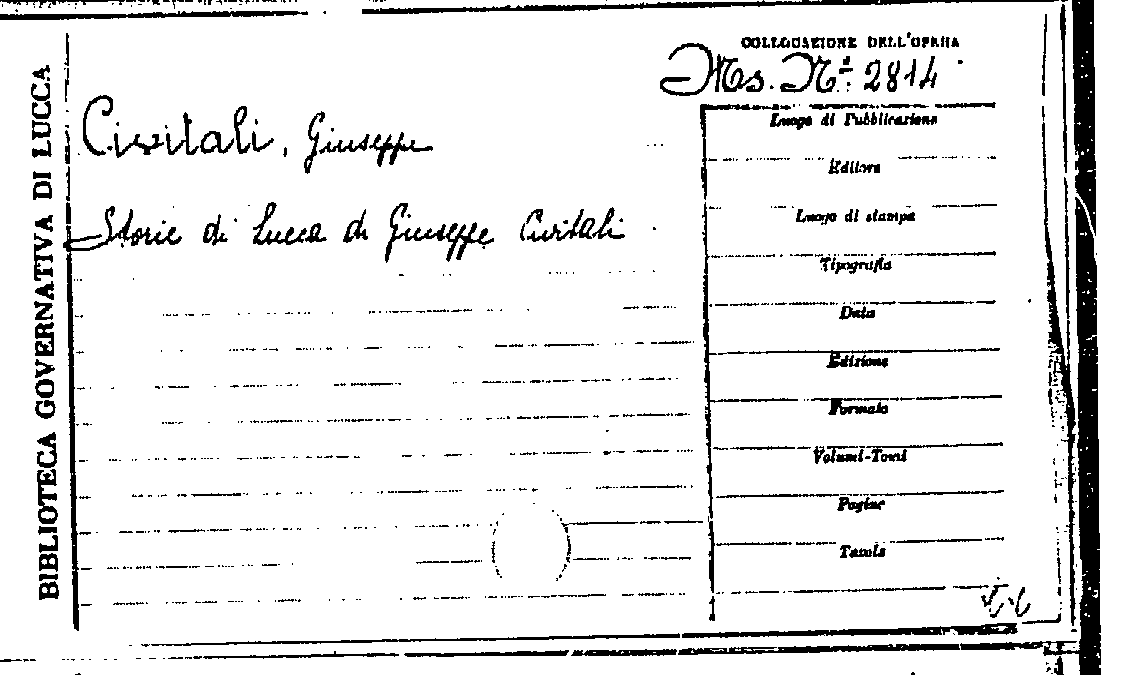 BIBLIOTECA GOVERNATIVA DI LUCCA
COLLOCAZIONE DELL'OPERA
Ms. Nº. 2814
Civitali, Giuseppe
Storie di Lucca di Giuseppe Civitali
Luogo di Pubblicazione
Editore
Luogo di stampa
Tipografia
Data
Edizione
Formato
Volumi-Tomi
Pagine
Tavole